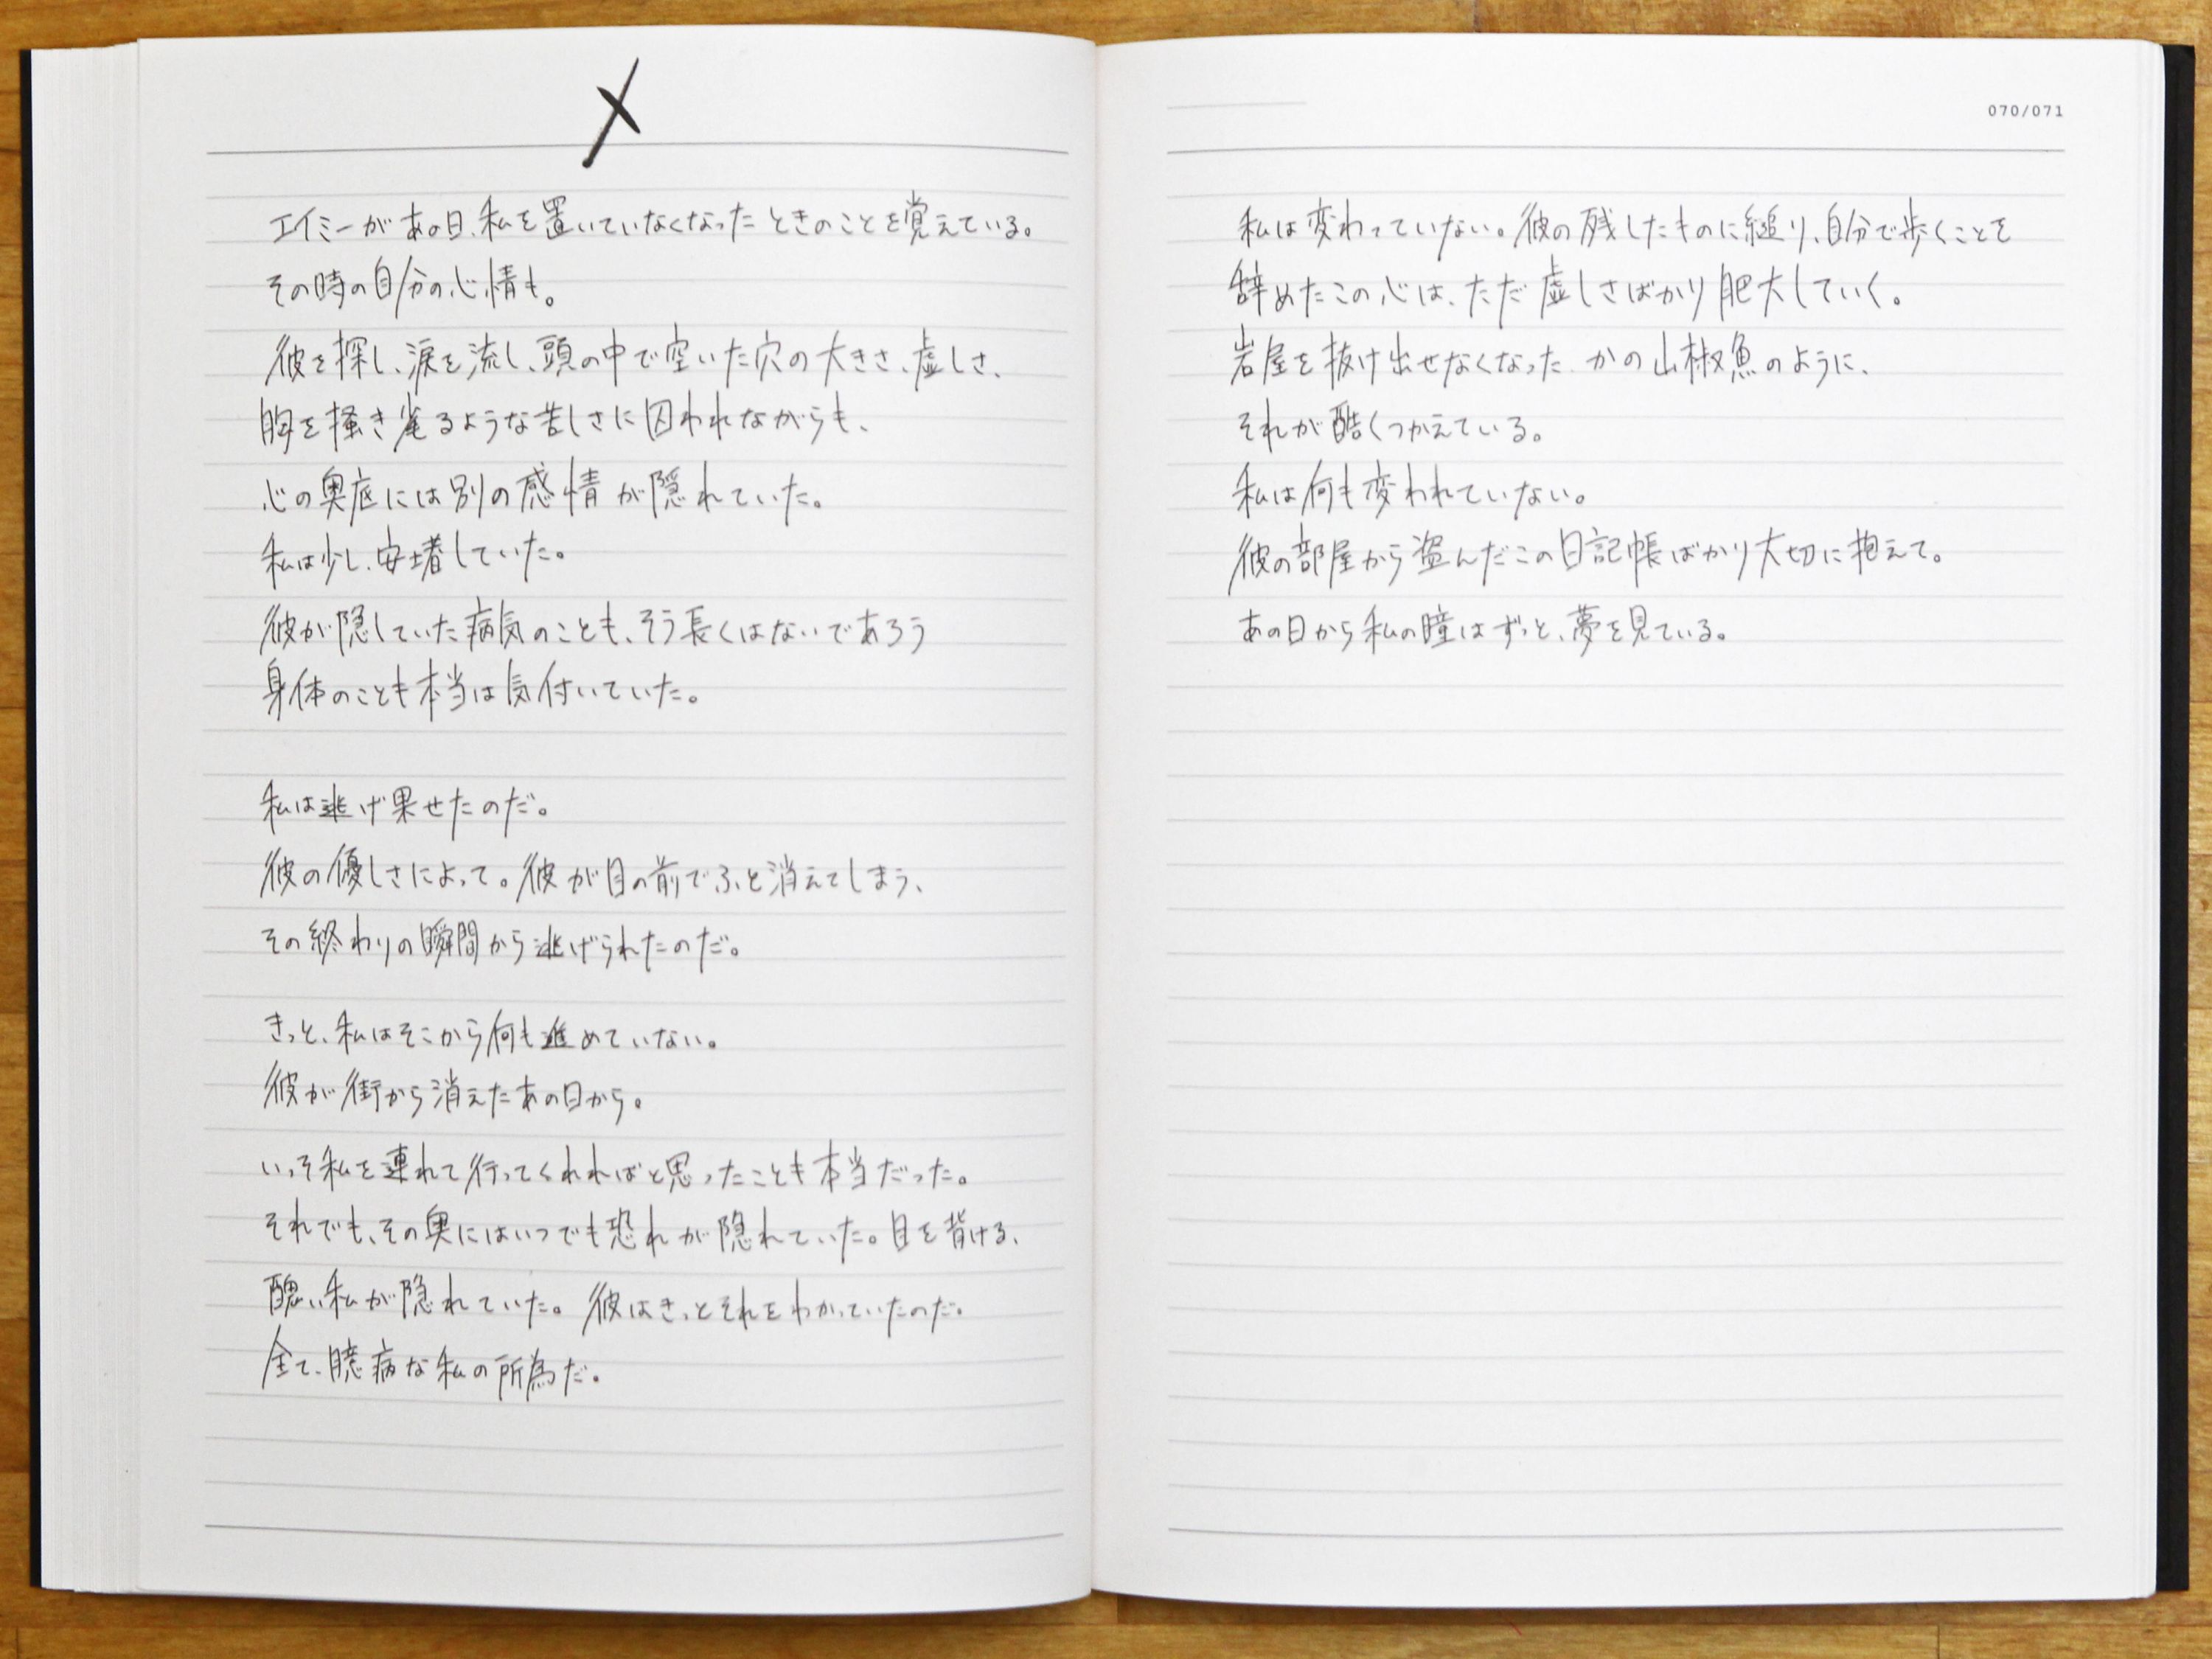 エイミーがあの日、私を置いていなくなったときのことを覚えている。
その時の自分の心情も。
彼を探し、涙を流し、頭の中で空いた穴の大きさ、虚しさ、
胸を掻き毟るような苦しさに囚われながらも、
心の奥底には別の感情が隠れていた。
私は少し、安堵していた。
彼が隠していた病気のことも、そう長くはないであろう
身体のことも本当は気付いていた。
私は逃げ果せたのだ。
彼の優しさによって。彼が目の前でふと消えてしまう、
その終わりの瞬間から逃げられたのだ。
きっと、私はそこから何も進めていない。
彼が街から消えたあの日から。
いっそ私を連れて行ってくれればと思ったことも本当だった。
それでも、その奥にはいつでも恐れが隠れていた。目を背ける、
醜い私が隠れていた。彼はきっとそれをわかっていたのだ。
全て、臆病な私の所為だ。
070/071
私は変わっていない。彼の残したものに縋り、自分で歩くことを
辞めたこの心は、ただ虚しさばかり肥大していく。
岩屋を抜け出せなくなった、かの山椒魚のように、
それが酷くつかえている。
私は何も変われていない。
彼の部屋から盗んだこの日記帳ばかり大切に抱えて。
あの日から私の瞳はずっと、夢を見ている。